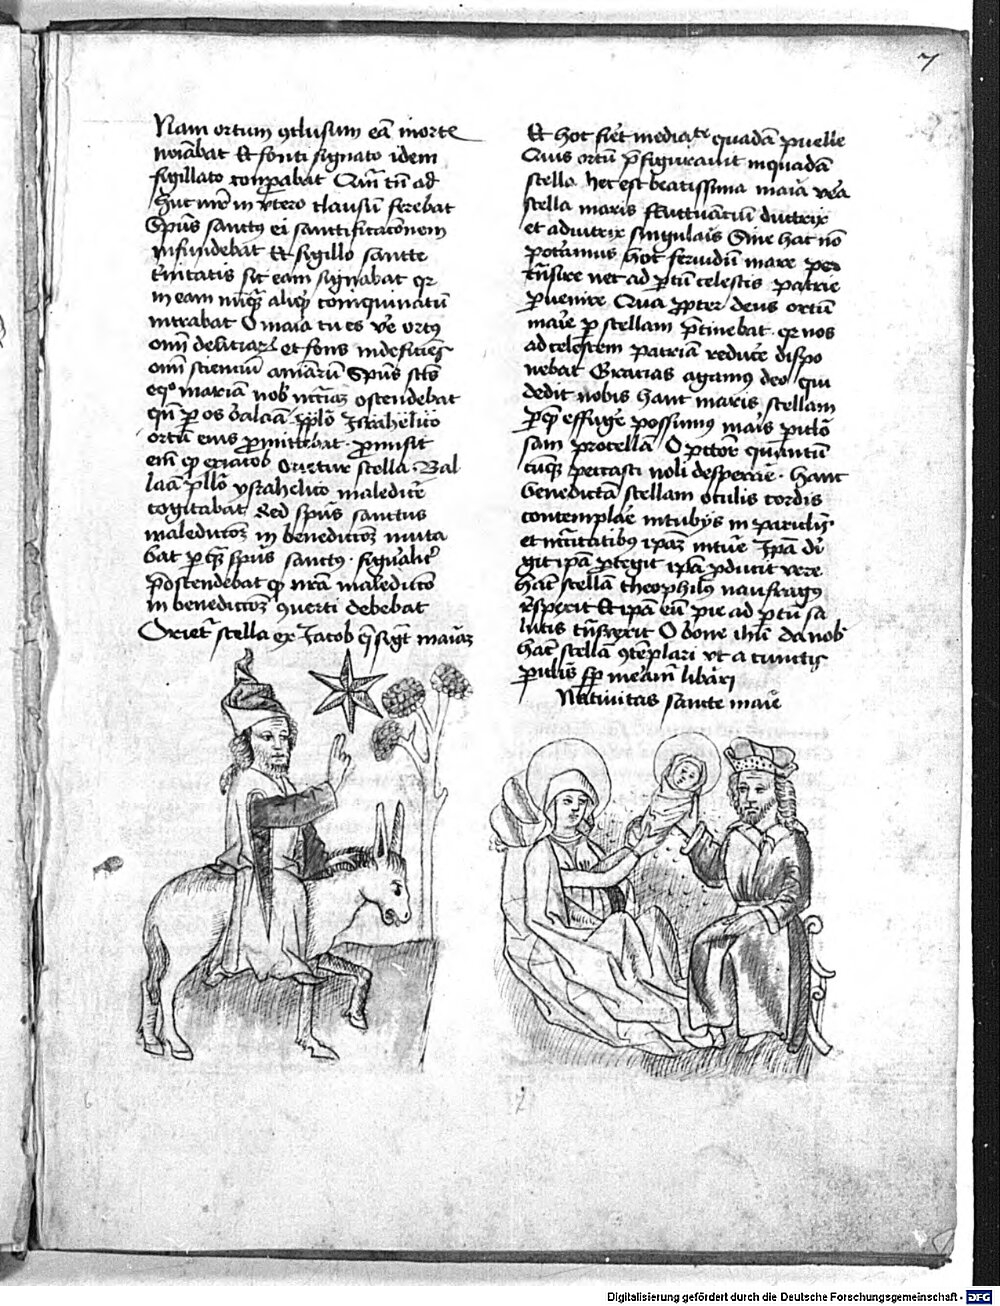 7
Nam ortum ꝯclusum eā inorte
noīabat Et fonti signato idem
sigillato conpabat Qm̄ tū ad
huc mr̄e in vtero clausū ferebat
Spūs sanctꝰ ei sanctificacōnem
infundebat Et sigillo sancte
tīnitatis sic eam signabat qr
in eam nūqꝫ aliqḍ coinquinatū
intrabat O maīa tu es ve ortꝰ
om̄ deliciarꝫ et fons indeficiēs
om̄ sciencīū aniārū Spūs scūs
eq̊ mariam nobꝭ ostendebat
qn̄ ꝑ os balaā ꝑplo Israhelico
ortū eius ꝓmittebat · ꝓmisit
em̄ qꝫ exiacob Orietur stella · Bal
laam ꝑllo ysrahelico maledice
cogitabat sed spūs sanctus
maledictōꝫ in benedictōꝫ muta
bat ꝑ qꝫ spūs sanctꝰ · figuralit̄
postendebat qꝫ nrām maledictō
in benedictōꝫ ꝯuerti debebat
Oriet̄ stella ex Jacob q̄ sigt̄ mariāꝫ
Et hoc fiet mediāte quadā puelle
Cuius ortū p̄figurauit inquadā
stella hec est beatissima maīa vr̄a
stella maris fluctuāciū ductrix
et adiutrix singulaīs Sine hac nō
potamus hoc feruidū mare per
trn̄sire nec ad ꝑtū celestis patrie
ꝑuenire Qua ꝓpter deus ortū
maīe ꝑ stellam p̄tinebat · qꝛ nos
ad celestem patriā reduce dispo
nebat Gracias agamꝰ deo qui
dedit nobis hanc maris stellam
ꝑ q̄ effuge possumꝰ maīs piclō
sam procellā O pctor quantū
cūqꝫ peccasti noli desperare · hanc
benedictā stellam oculis cordis
contemplāe intubijs in periculis
et ipāꝫ intue Ipā di
git ipā ꝓtegit ipā ꝓducit vere
hāc stellā theophilꝰ naufragꝰ
respexit Et ipā eū pie ad ꝑtū sa
lutis trn̄suexit O bone ih̄u da nobꝭ
hāc stellā ꝯteplari vt a cunctis
piculis sꝑ meam libari
Natiuitas sancte maīe
6
7
Digitalisierung gefördert durch die Deutsche Forschungsgemeinschaft - DFG